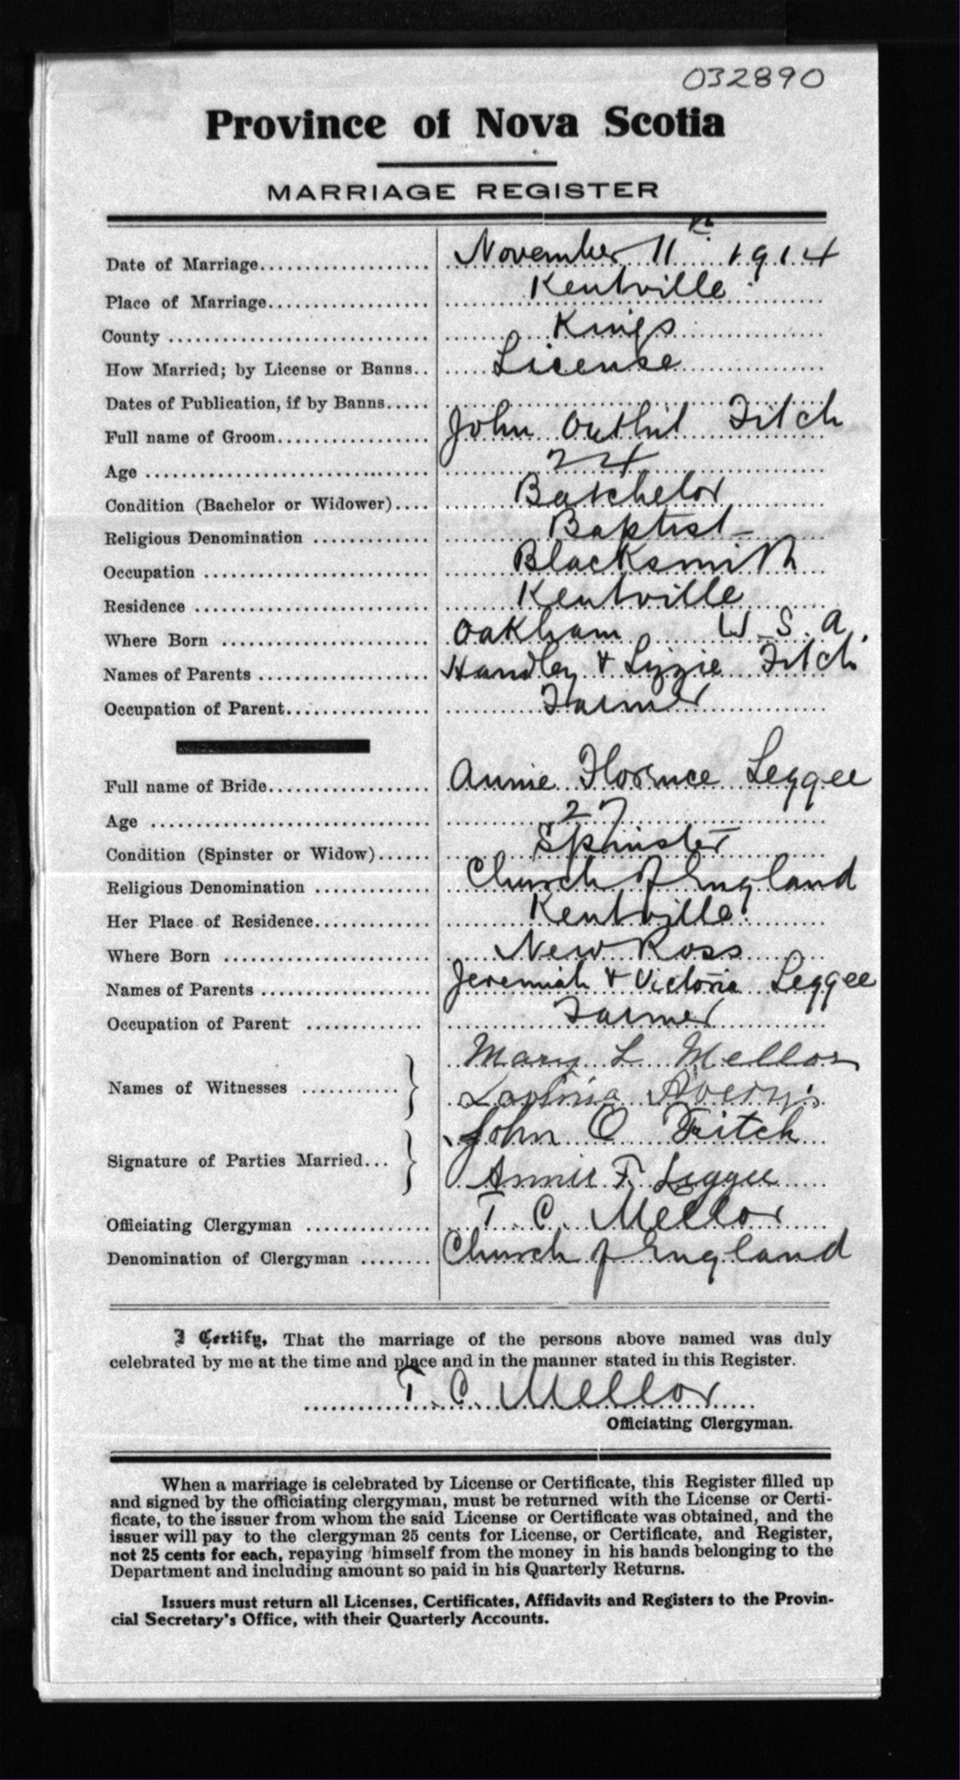 032890
Province of Nova Scotia
MARRIAGE REGISTER
Date of Marriage.................... November 11th 1914
Place of Marriage................... Kentville
County .............................. Kings
How Married; by License or Banns.. License
Dates of Publication, if by Banns.....
Full name of Groom.................. John Outhit Fitch
Age ................................. 24
Condition (Bachelor or Widower).... Batchelor
Religious Denomination .............. Baptist
Occupation .......................... Blacksmith
Residence ........................... Kentville
Where Born ......................... Oakham U.S.A.
Names of Parents .................... Handley & Lizzie Fitch
Occupation of Parent................. Farmer
Full name of Bride................... Annie Florence Leggee
Age ................................. 27
Condition (Spinster or Widow)...... Spinster
Religious Denomination .............. Church of England
Her Place of Residence.............. Kentville
Where Born ......................... New Ross
Names of Parents .................... Jeremiah & Victoria Leggee
Occupation of Parent .............. Farmer
Mary L Mellor
Names of Witnesses ...........
John O Fitch
Signature of Parties Married...
Annie F. Leggee
Officiating Clergyman .............. T. C. Mellor
Denomination of Clergyman ........ Church of England
I Certify, That the marriage of the persons above named was duly
celebrated by me at the time and place and in the manner stated in this Register.
T. C. Mellor
Officiating Clergyman.
When a marriage is celebrated by License or Certificate, this Register filled up
and signed by the officiating clergyman, must be returned with the License or Certi-
ficate, to the issuer from whom the said License or Certificate was obtained, and the
issuer will pay to the clergyman 25 cents for License, or Certificate, and Register,
not 25 cents for each, repaying himself from the money in his hands belonging to the
Department and including amount so paid in his Quarterly Returns.
Issuers must return all Licenses, Certificates, Affidavits and Registers to the Provin-
cial Secretary's Office, with their Quarterly Accounts.